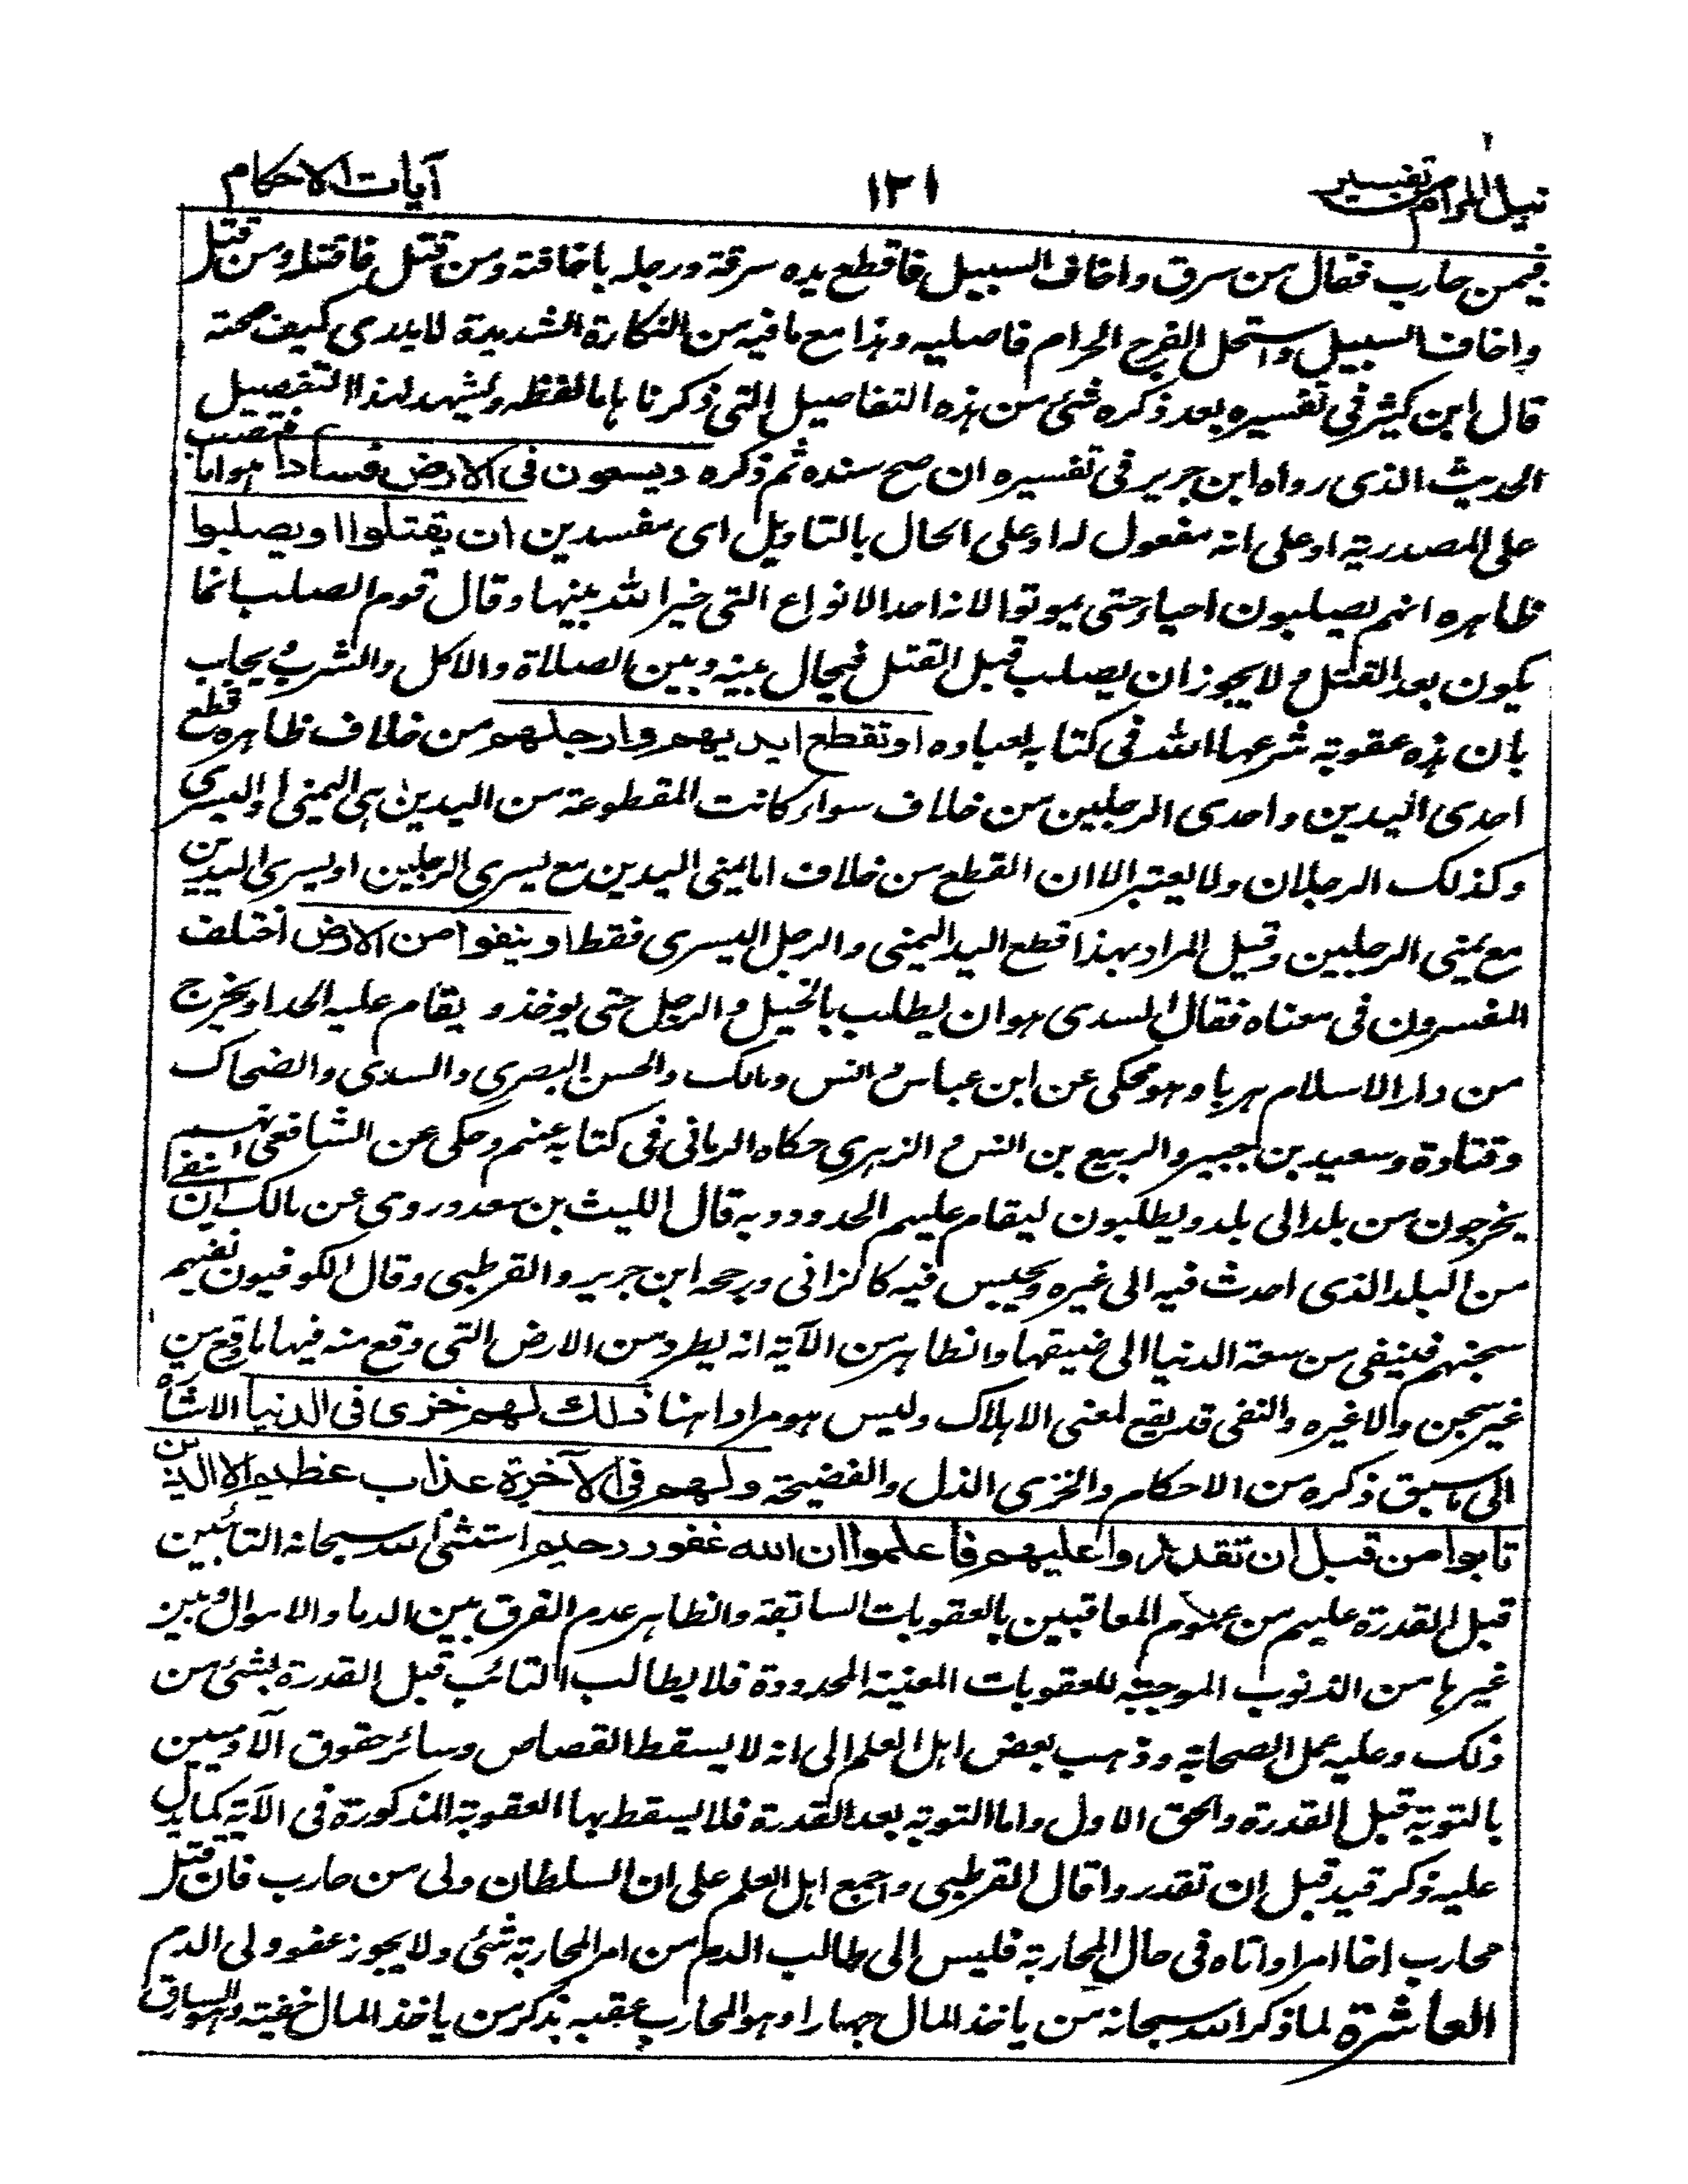 نيل المرام تفسير
١٣١
آيات الاحكام
فيمن حارب فقال من سرق واخاف السبيل فاقطع يده سرقة ورجله باخافته ومن قتل فاقتله ومن قتل
واخاف السبيل واستحل الفرج الحرام فاصلبه وهذا مع ما فيه من النكارة الشديدة لا يدرى كيف صحته
قال ابن كثير في تفسيره بعد ذكره شئ من هذه التفاصيل التي ذكرنا ها ما لفظه ويشهد لهذا التفصيل
الحديث الذى رواه ابن جرير فى تفسيره ان صح سنده ثم ذكره ويسعون فى الارض فسادا هو اما منتصب
على المصدرية او على انه مفعول له او على الحال بالتاويل اى مفسدين ان يقتلوا او يصلبوا
ظاهره انهم يصلبون احياء حتى يموتوا لانه احد الانواع التى خير الله بينها وقال قوم الصلب انما
يكون بعد القتل ولا يجوز ان يصلب قبل القتل فيحال بينه وبين الصلاة والاكل والشرب ويجاب
بان هذه عقوبة شرعها الله فى كتابه لعباده او تقطع ايديهم وارجلهم من خلاف ظاهره قطع
احدى اليدين واحدى الرجلين من خلاف سواء كانت المقطوعة من اليدين هى اليمنى او اليسرى
وكذلك الرجلان ولا يعتبر الا ان القطع من خلاف اما يمنى اليدين مع يسرى الرجلين او يسرى اليدين
مع يمنى الرجلين وقيل المراد بهذا قطع اليد اليمنى والرجل اليسرى فقط او ينفوا من الارض اختلف
المفسرون فى معناه فقال السدى هو ان يطلب بالخيل والرجل حتى يوخذ و يقام عليه الحد او يخرج
من دار الاسلام هربا وهو محكى عن ابن عباس و انس ومالك والحسن البصرى والسدى والضحاك
وقتادة وسعيد بن جبير والربيع بن انس و الزهرى حكاه الرمانى فى كتابه عنهم وحكى عن الشافعى انهم
يخرجون من بلد الى بلد ويطلبون ليقام عليهم الحدود وبه قال الليث بن سعد وروى عن مالك ان ينفى
من البلد الذى احدث فيه الى غيره ويحبس فيه كالزانى ورجحه ابن جرير والقرطبى وقال الكوفيون نفيهم
سجنهم فينفى من سعة الدنيا الى ضيقها والظاهر من الآية انه يطرد من الارض التى وقع منه فيها ما وقع من
غير سجن ولا غيره والنفى قد يقع لمعنى الاهلاك وليس هو مرادا هنا ذلك لهم خزى فى الدنيا الاشارة
الى ما سبق ذكره من الاحكام والخزى الذل والفضيحة ولهم فى الآخرة عذاب عظيم الا الذين
تابوا من قبل ان تقدروا عليهم فاعلموا ان الله غفور رحيم استثنى الله سبحانه التائبين
قبل القدرة عليهم من عموم المعاقبين بالعقوبات السابقة والظاهر عدم الفرق بين الدماء والاموال وبين
غيرها من الذنوب الموجبة للعقوبات المعنية المحدودة فلا يطالب التائب قبل القدرة بشئ من
ذلك وعليه عمل الصحابة وذهب بعض اهل العلم الى انه لا يسقط القصاص وسائر حقوق الآدميين
بالتوبة قبل القدرة والحق الاول واما التوبة بعد القدرة فلا يسقط بها العقوبة المذكورة فى الآية كما يدل
عليه ذكر قيد قبل ان تقدروا قال القرطبى واجمع اهل العلم على ان السلطان ولى من حارب فان قتل
محارب اخا امرا واتاه فى حال المحاربة فليس الى طالب الدم من امر المحاربة شئى ولا يجوز عفو ولى الدم
العاشرة لما ذكر الله سبحانه من ياخذ المال جهارا وهو المحارب عقبه بذكر من ياخذ المال خفية وهو السارق